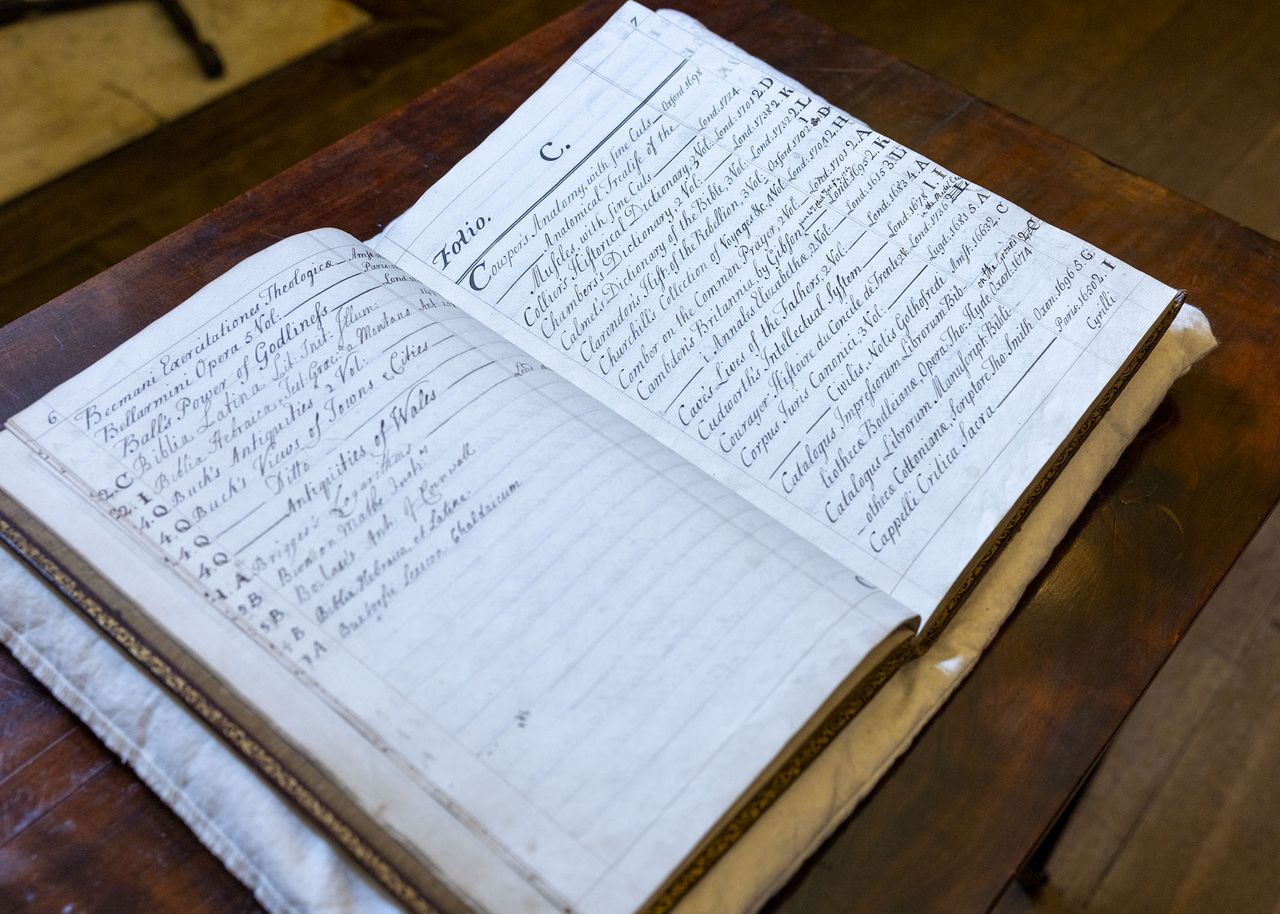 6
Becmani Exercitationes Theologicæ Amst
Bellarmini Opera 5 Vol. Paris
Ball's Power of Godliness Lond
2. C Biblia Latina Lit. Init. Illum:
2. I Biblia Hebraica, Int. Græc. Montans Ant.
4. Q Buck's Antiquities 2 Vol.
4. Q Buck's Views of Towns & Cities
4. Q Ditto
4. Q Antiquities of Wales
A Briggs's Logarithms
B Bion on Mathe. Instr:
5 B Borlase's Anth. of Cornwall
4 B Biblia Hebraica et Latina
A Buxtorfii Lexicon Chaldaicum
7
C.
Folio.
Cowper's Anatomy, with fine Cuts Oxford. 1698
Anatomical Treatise of the
Muscles, with fine Cuts Lond. 1724 2. D
Collier's Historical Dictionary, 3 Vol. Lond. 1701 2. K
Chambers's Dictionary, 2 Vol. Lond. 1738 2. L
Calmet's Dictionary of the Bible, 3 Vol. Lond. 1732
Clarendons Hist: of the Rebellion, 3 Vol. Oxford 1702
Churchill's Collection of Voyages &c 4 Vol. Lond. 1704 2. H
Comber on the Common Prayer, 2 Vol. Lond. 1701 2. A
Cambden's Britannia by Gibson Lond. 1695 2. K
Annales Elizabethæ 2 Vol. Lond. 1615 3. L
Cave's Lives of the Fathers 2 Vol. Lond. 1683 4. A
Cudworth's Intellectual System Lond. 1678 1. I
Courayer Histoire du Concile de Trente 2 V.
Corpus Juris Canonici, 3 Vol.
Civilis, Notis Gothofredi
Catalogus Impressorum Librorum Bib-
liothecæ Bodleianæ, Opera Tho: Hyde Oxon. 1674
Catalogus Librorum Manuscript. Bibli-
-othecæ Cottonianæ, Scriptore Tho: Smith Oxon. 1696 5 G.
Cappelli Critica Sacra Paris. 1650 2. I
Cyrilli